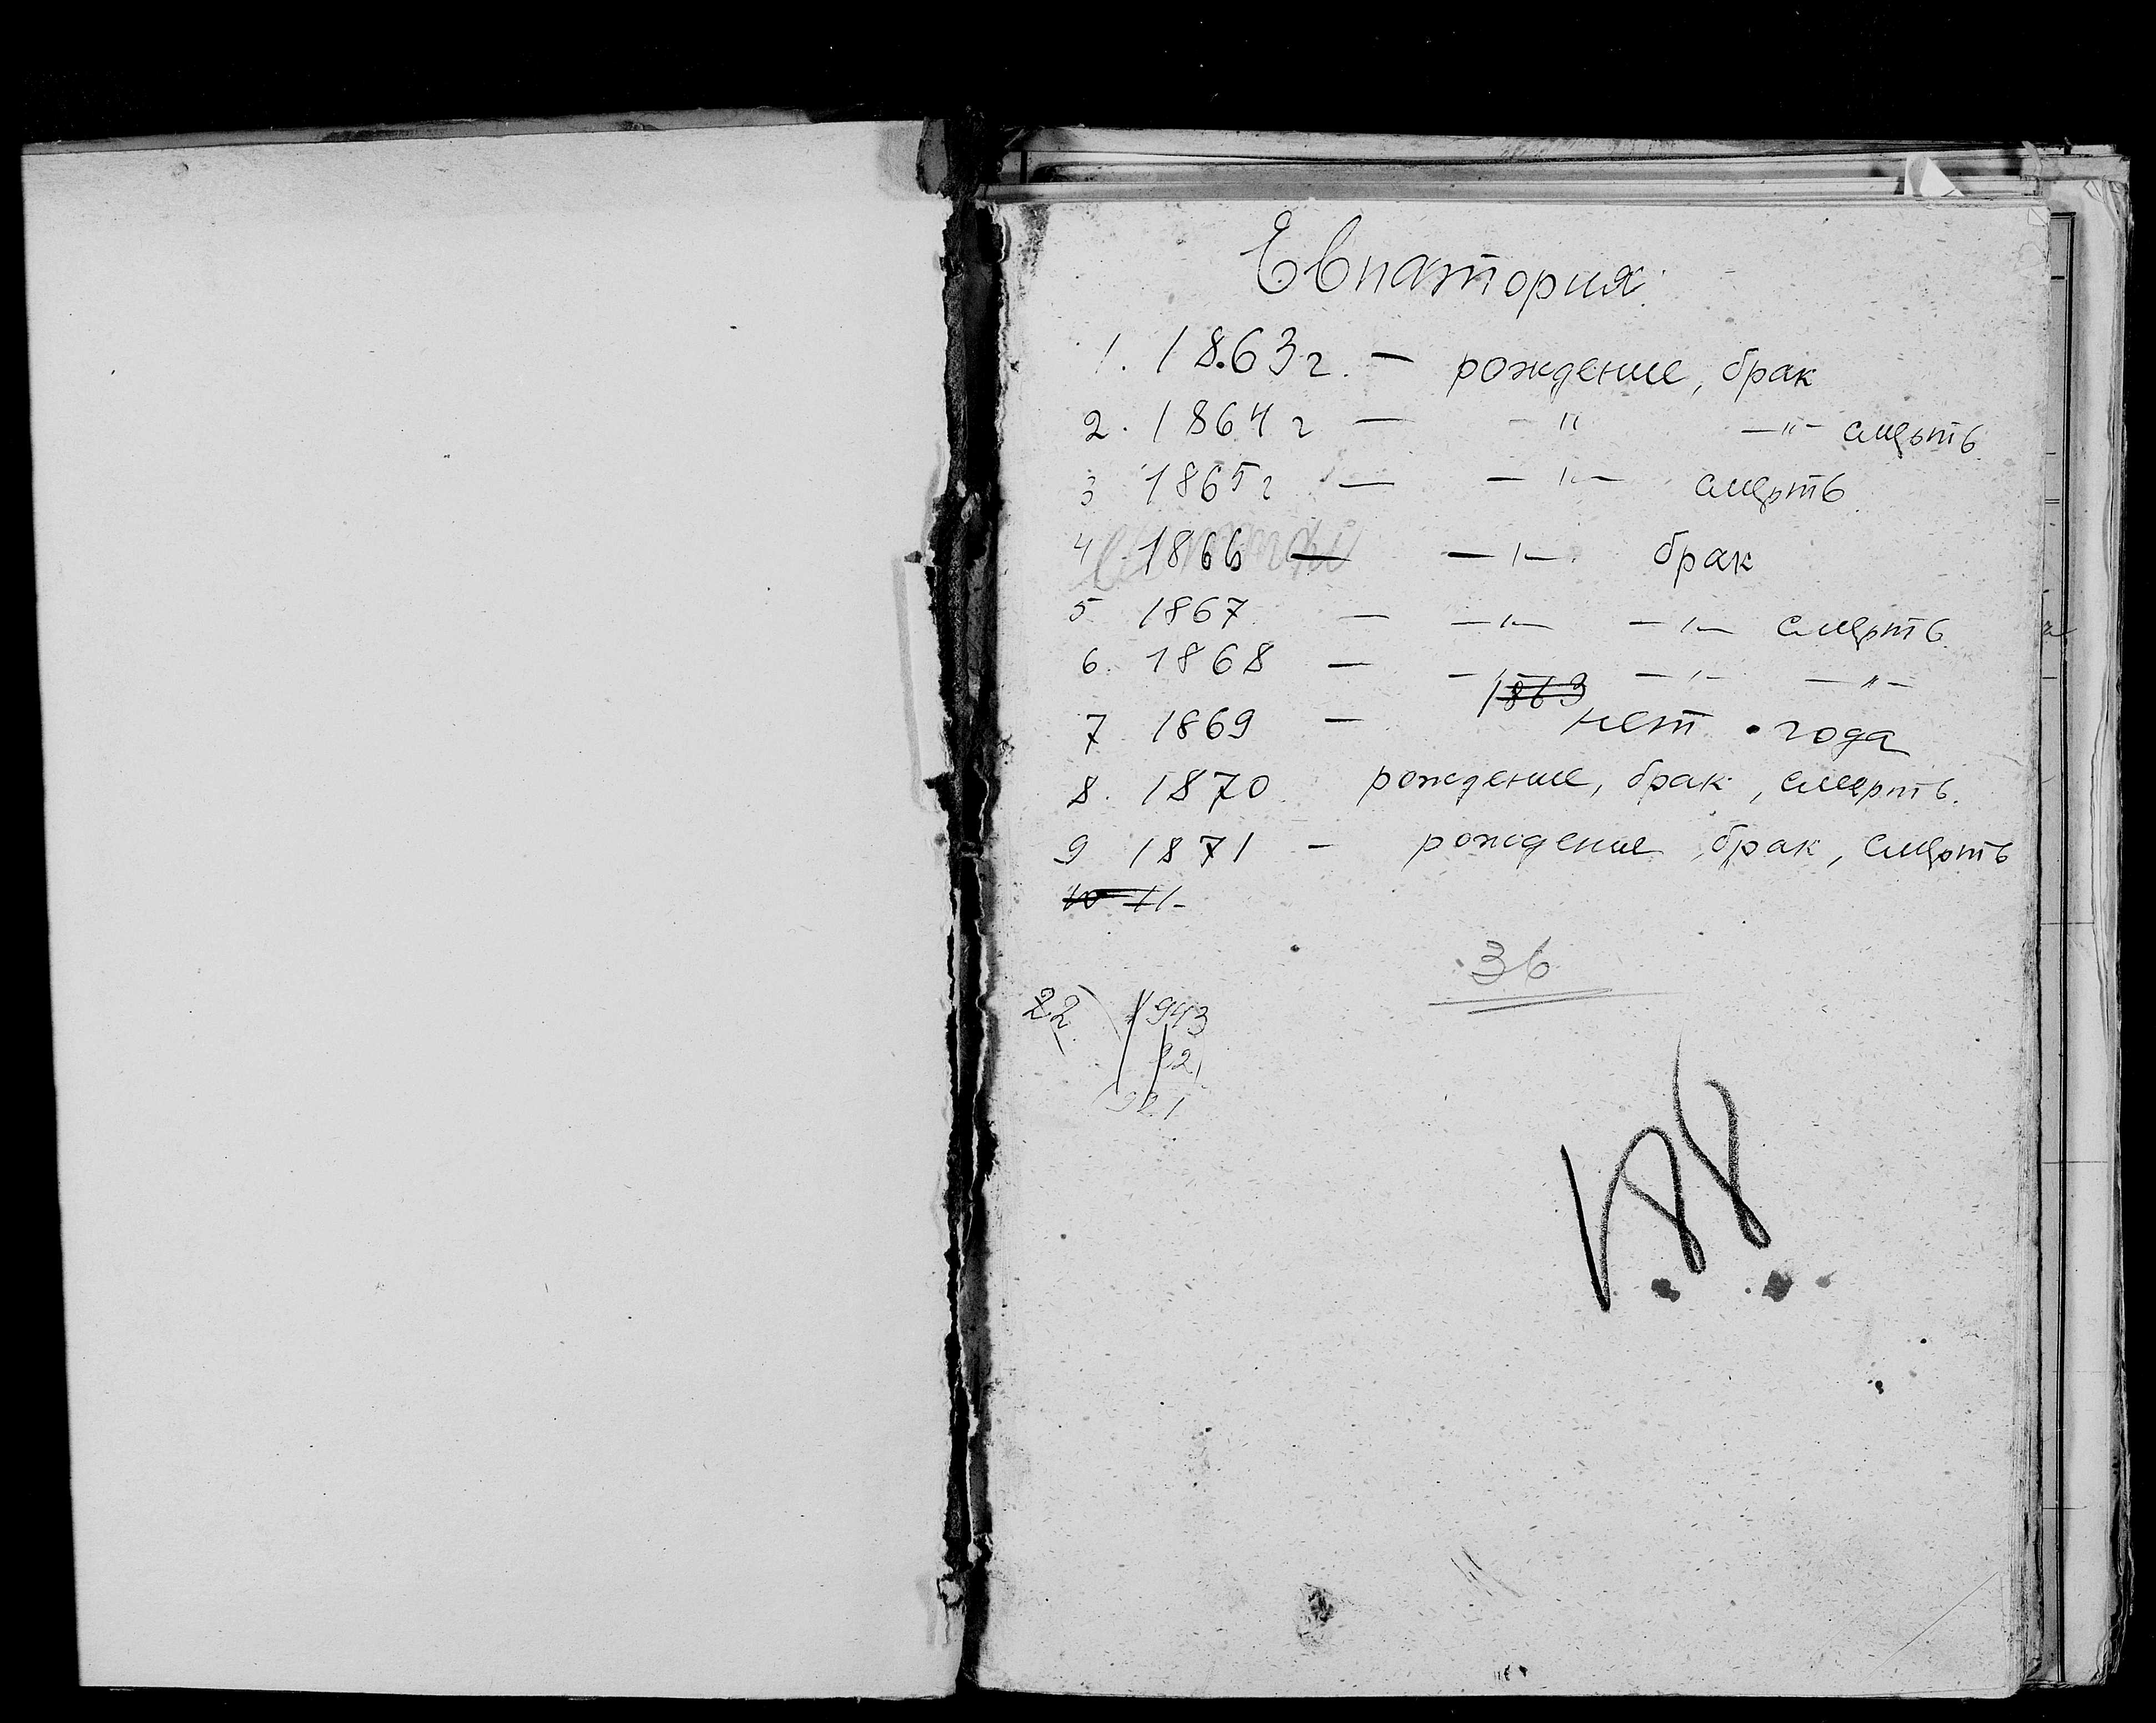 Евпатория
1. 1863 г. — рождение, брак
2. 1864 г — - " —"— смерть
3 1865 г — —"— смерть
4 1866 — —"— брак
5 1867 — —"— —"— смерть
6. 1868 — —"— —"— —"—
1863
7 1869 — нет года
8. 1870 рождение, брак, смерть.
9 1871 — рождение, брак, смерть
10 11-
36
22 1943
22
1921
188